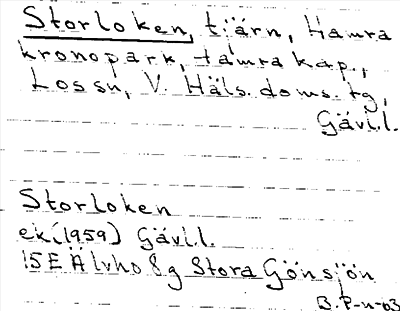 Storloken, tjärn, Hamra
kronopark, Hamra kap.,
Los sn, V. Häls. doms. tg,
Gävl.l.
Storloken
ek (1959) Gävl.l.
15E Älvho 8g Stora Gönsjön
B.P-n-03